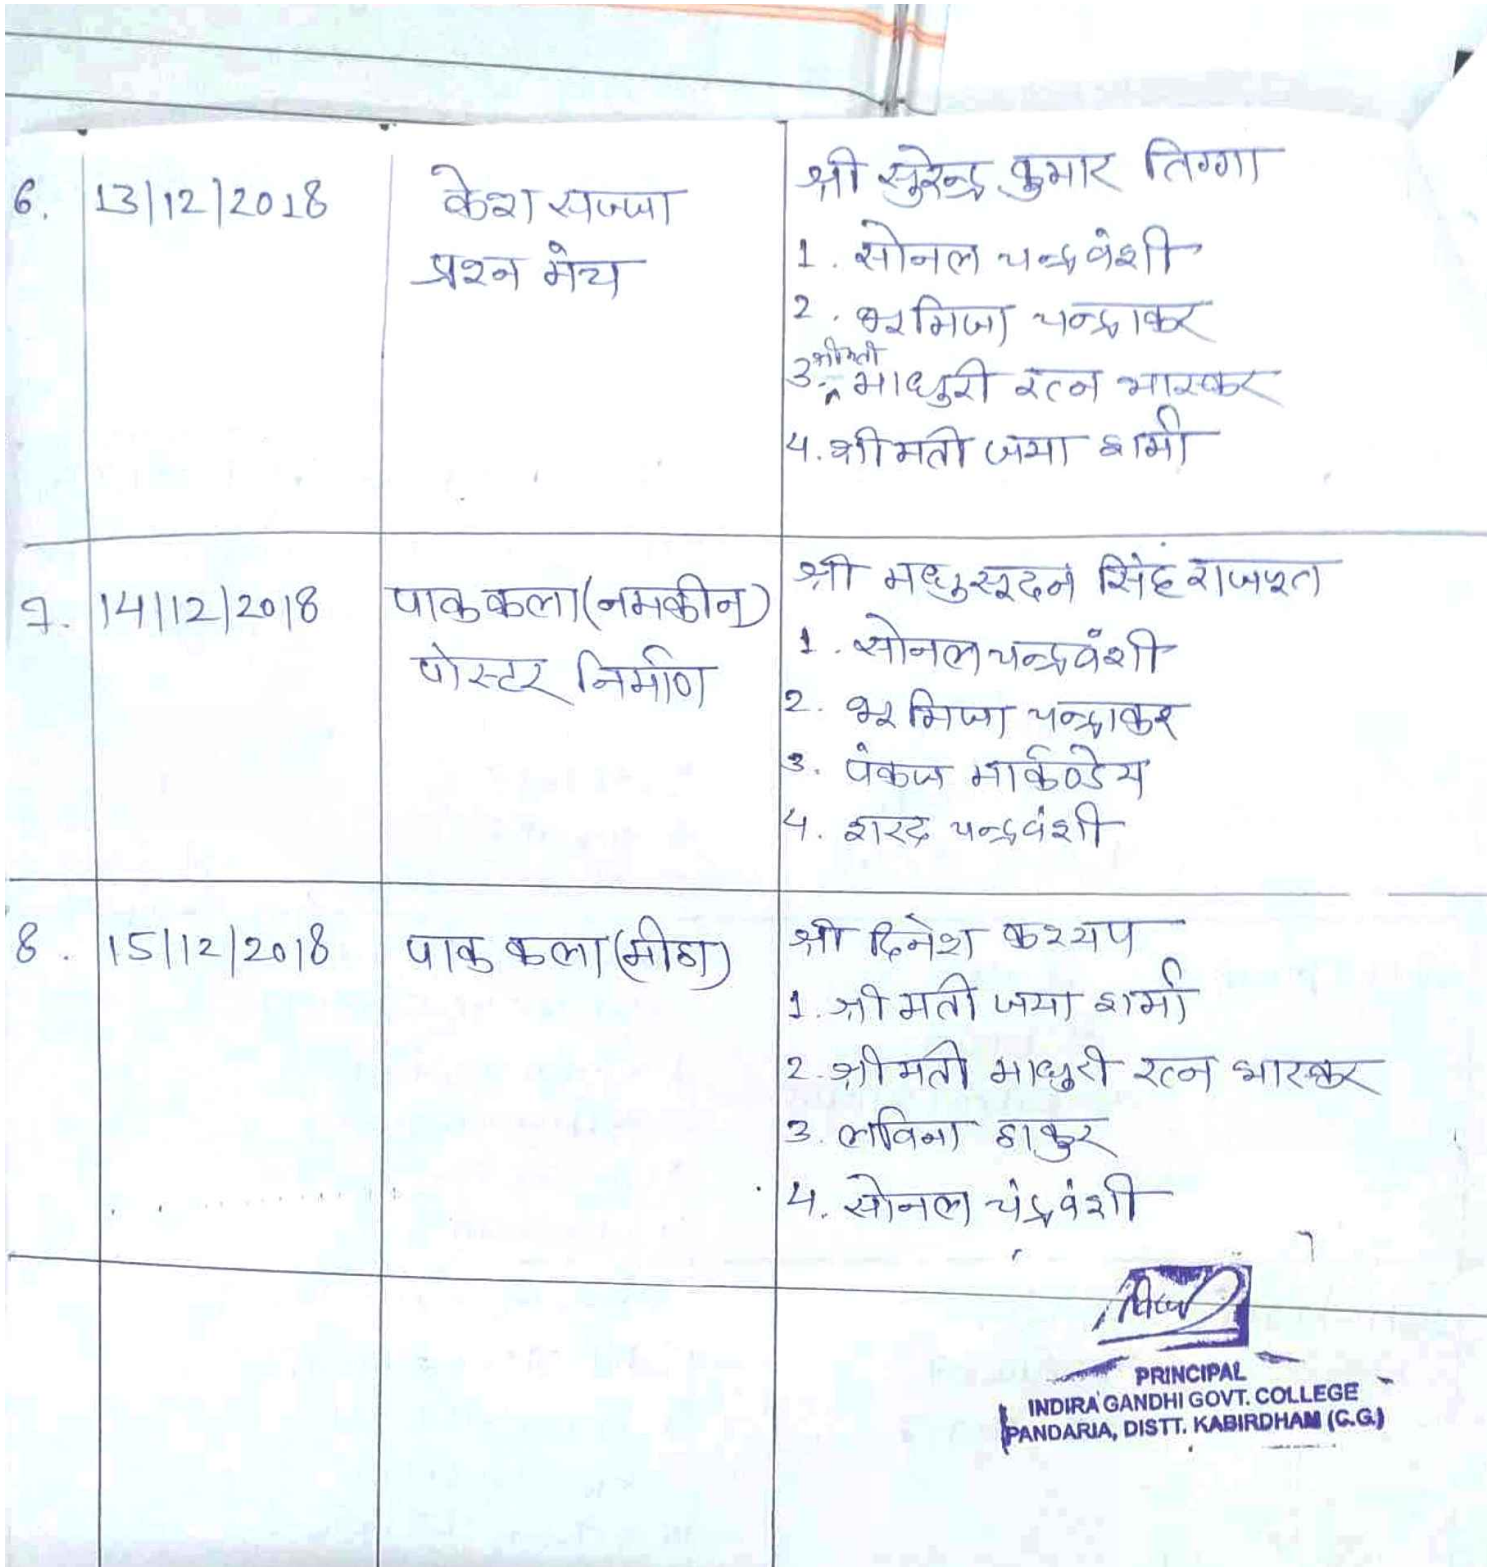 6. 13/12/2018 केश सज्जा
प्रश्न मंच
श्री सुरेन्द्र कुमार तिग्गा
1. सोनल चन्द्रवंशी
2. भूमिजा चन्द्राकर
3. श्रीमती माधुरी रत्न भास्कर
4. श्रीमती जया शर्मा
7. 14/12/2018 पाक कला (नमकीन)
पोस्टर निर्माण
श्री मधुसूदन सिंह राजपूत
1. सोनल चन्द्रवंशी
2. भूमिजा चन्द्राकर
3. पंकज मार्कण्डेय
4. शरद चन्द्रवंशी
8. 15/12/2018 पाक कला (मीठा)
श्री दिनेश कश्यप
1. श्रीमती जया शर्मा
2. श्रीमती माधुरी रत्न भास्कर
3. लविना ठाकुर
4. सोनल चंद्रवंशी
PRINCIPAL
INDIRA GANDHI GOVT. COLLEGE
PANDARIA, DISTT. KABIRDHAM (C.G.)